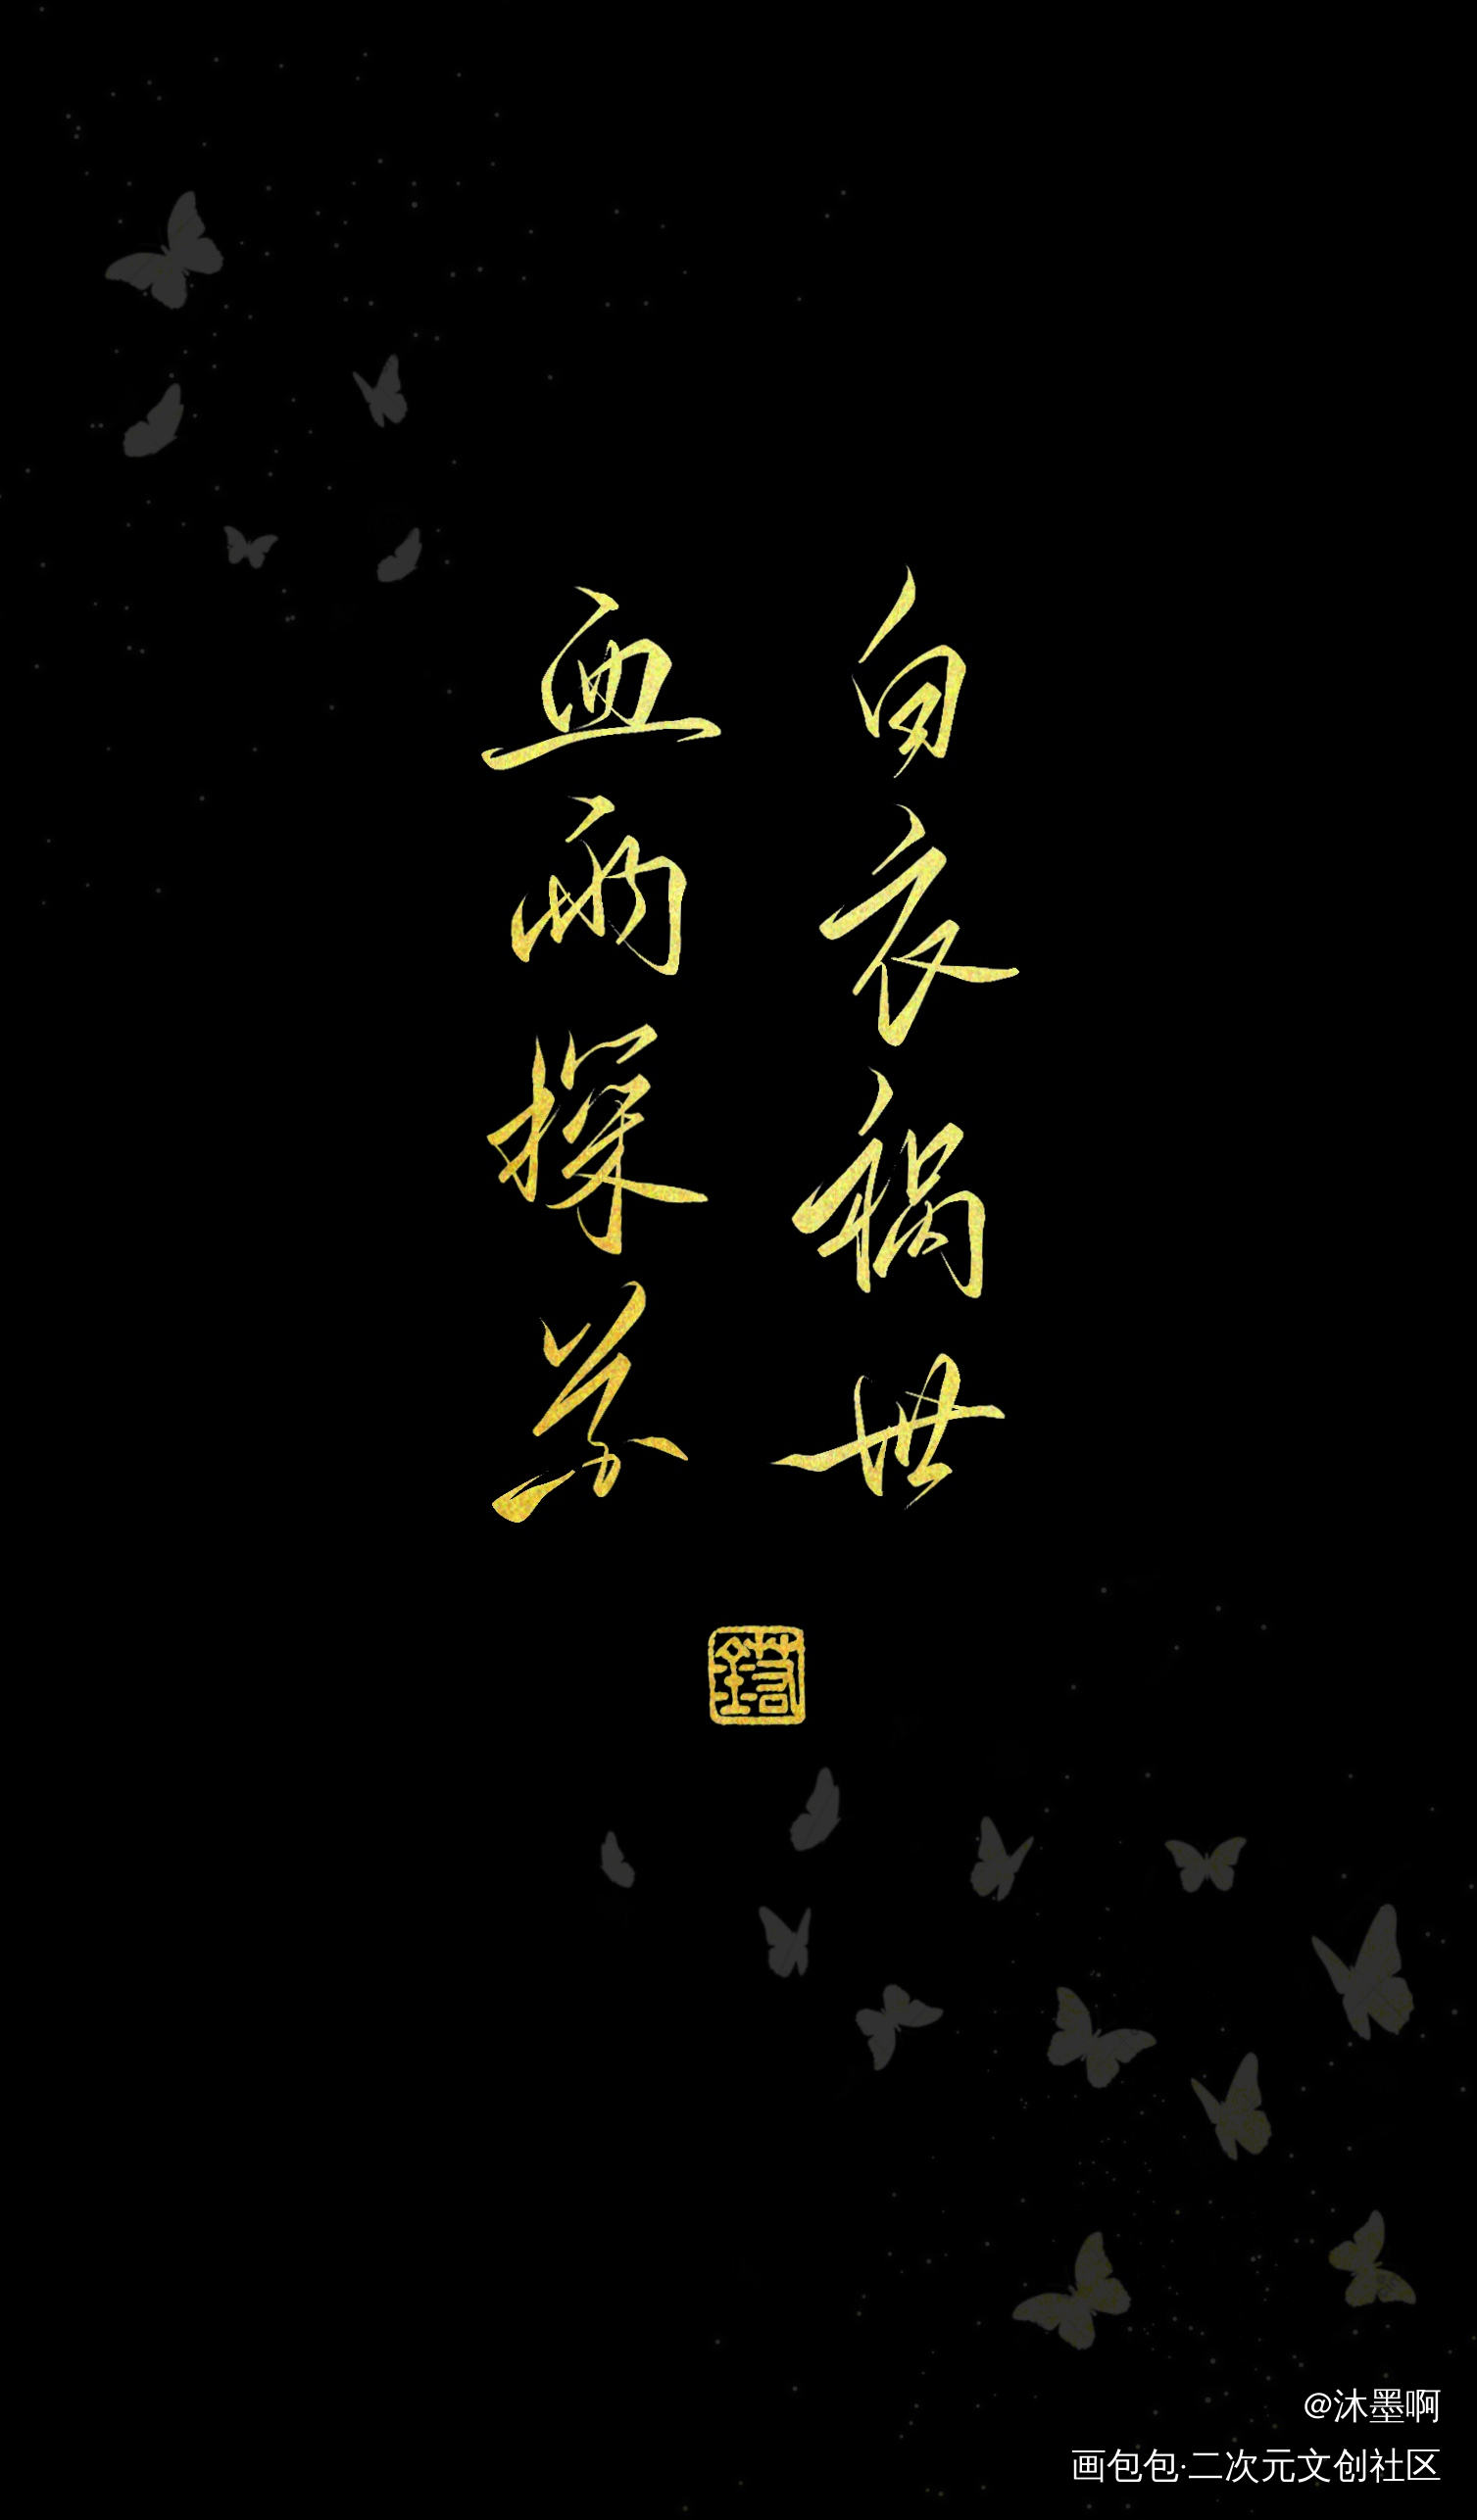 白衣祸世
血雨探花
@沐墨啊
画包包·二次元文创社区